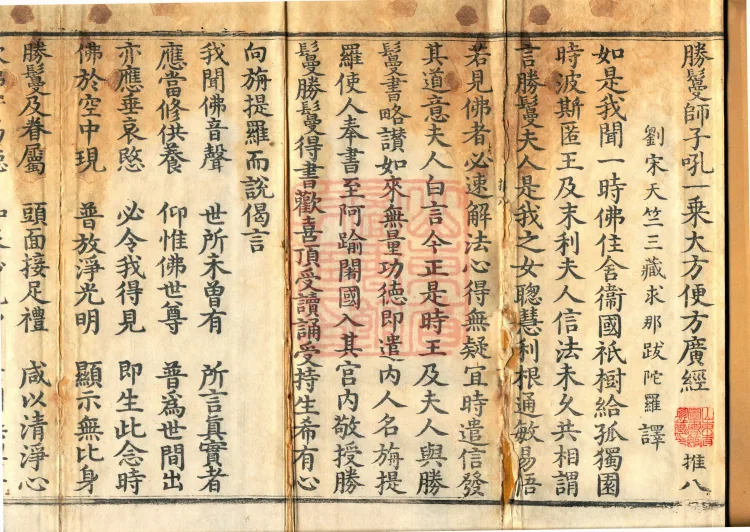 勝鬘師子吼一乘大方便方廣經 推八
劉宋天竺三藏求那跋陀羅譯
如是我聞一時佛住舍衞國祇樹給孤獨園
時波斯匿王及末利夫人信法未久共相謂
言勝鬘夫人是我之女聰慧利根通敏易悟
若見佛者必速解法心得無疑宜時遣信發
其道意夫人白言今正是時王及夫人與勝
鬘書略讃如來無量功德即遣內人名旃提
羅使人奉書至阿踰闍國入其宮內敬授勝
鬘勝鬘得書歡喜頂受讀誦受持生希有心
向旃提羅而說偈言
我聞佛音聲 世所未曾有 所言真實者
應當修供養 仰惟佛世尊 普為世間出
亦應垂哀愍 必令我得見 即生此念時
佛於空中現 普放淨光明 顯示無比身
勝鬘及眷屬 頭面接足禮 咸以清淨心